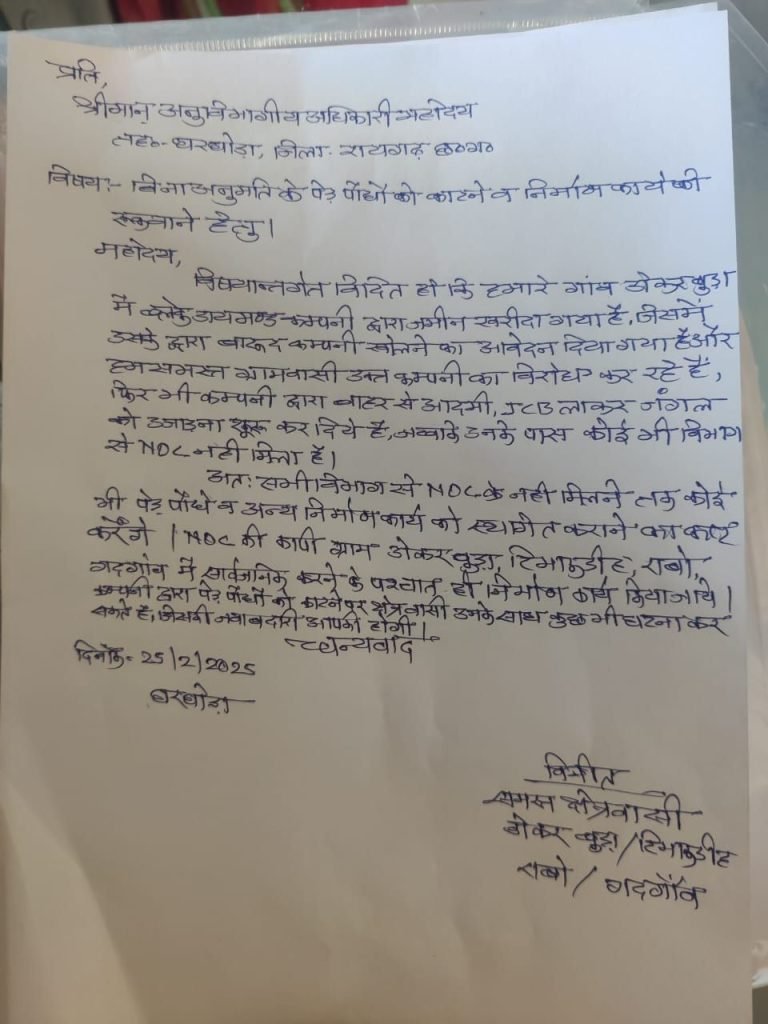 प्रति,
श्रीमान् अनुविभागीय अधिकारी महोदय
तह०- घरघोड़ा, जिला- रायगढ़ छ०ग०
विषय:- बिना अनुमति के पेड़ पौधों को काटने व निर्माण कार्य को
रूकवाने हेतु।
महोदय,
विषयान्तर्गत विदित हो कि हमारे गांव डोकरबुड़ा
में ब्लेक डायमण्ड कम्पनी द्वारा जमीन खरीदा गया है, जिसमें
उसके द्वारा बारूद कम्पनी खोलने का आवेदन दिया गया है और
हम समस्त ग्रामवासी उक्त कम्पनी का विरोध कर रहे हैं,
फिर भी कम्पनी द्वारा बाहर से आदमी, JCB लाकर जंगल
को उजाड़ना शुरू कर दिये है, जबकि उनके पास कोई भी विभाग
से NOC नही मिला है।
अत: सभी विभाग से NOC के नही मिलने तक कोई
भी पेड़ पौधे व अन्य निर्माण कार्य को स्थगित कराने का कष्ट
करेंगे। NOC की कापी ग्राम डोकरबुड़ा, टिमाकुडीह, राबो,
गदगांव में सार्वजनिक करने के पश्चात् ही निर्माण कार्य किया जाये।
कम्पनी द्वारा पेड़ पौधों को काटने पर क्षेत्रवासी उनके साथ कुछ भी घटना कर
सकते है, जिसकी जवाबदारी आपकी होगी।
धन्यवाद
दिनाँक- 25/2/2025
घरघोड़ा
विनीत
समस्त क्षेत्रवासी
डोकरबुड़ा/टिमाकुडीह
राबो/गदगाँव